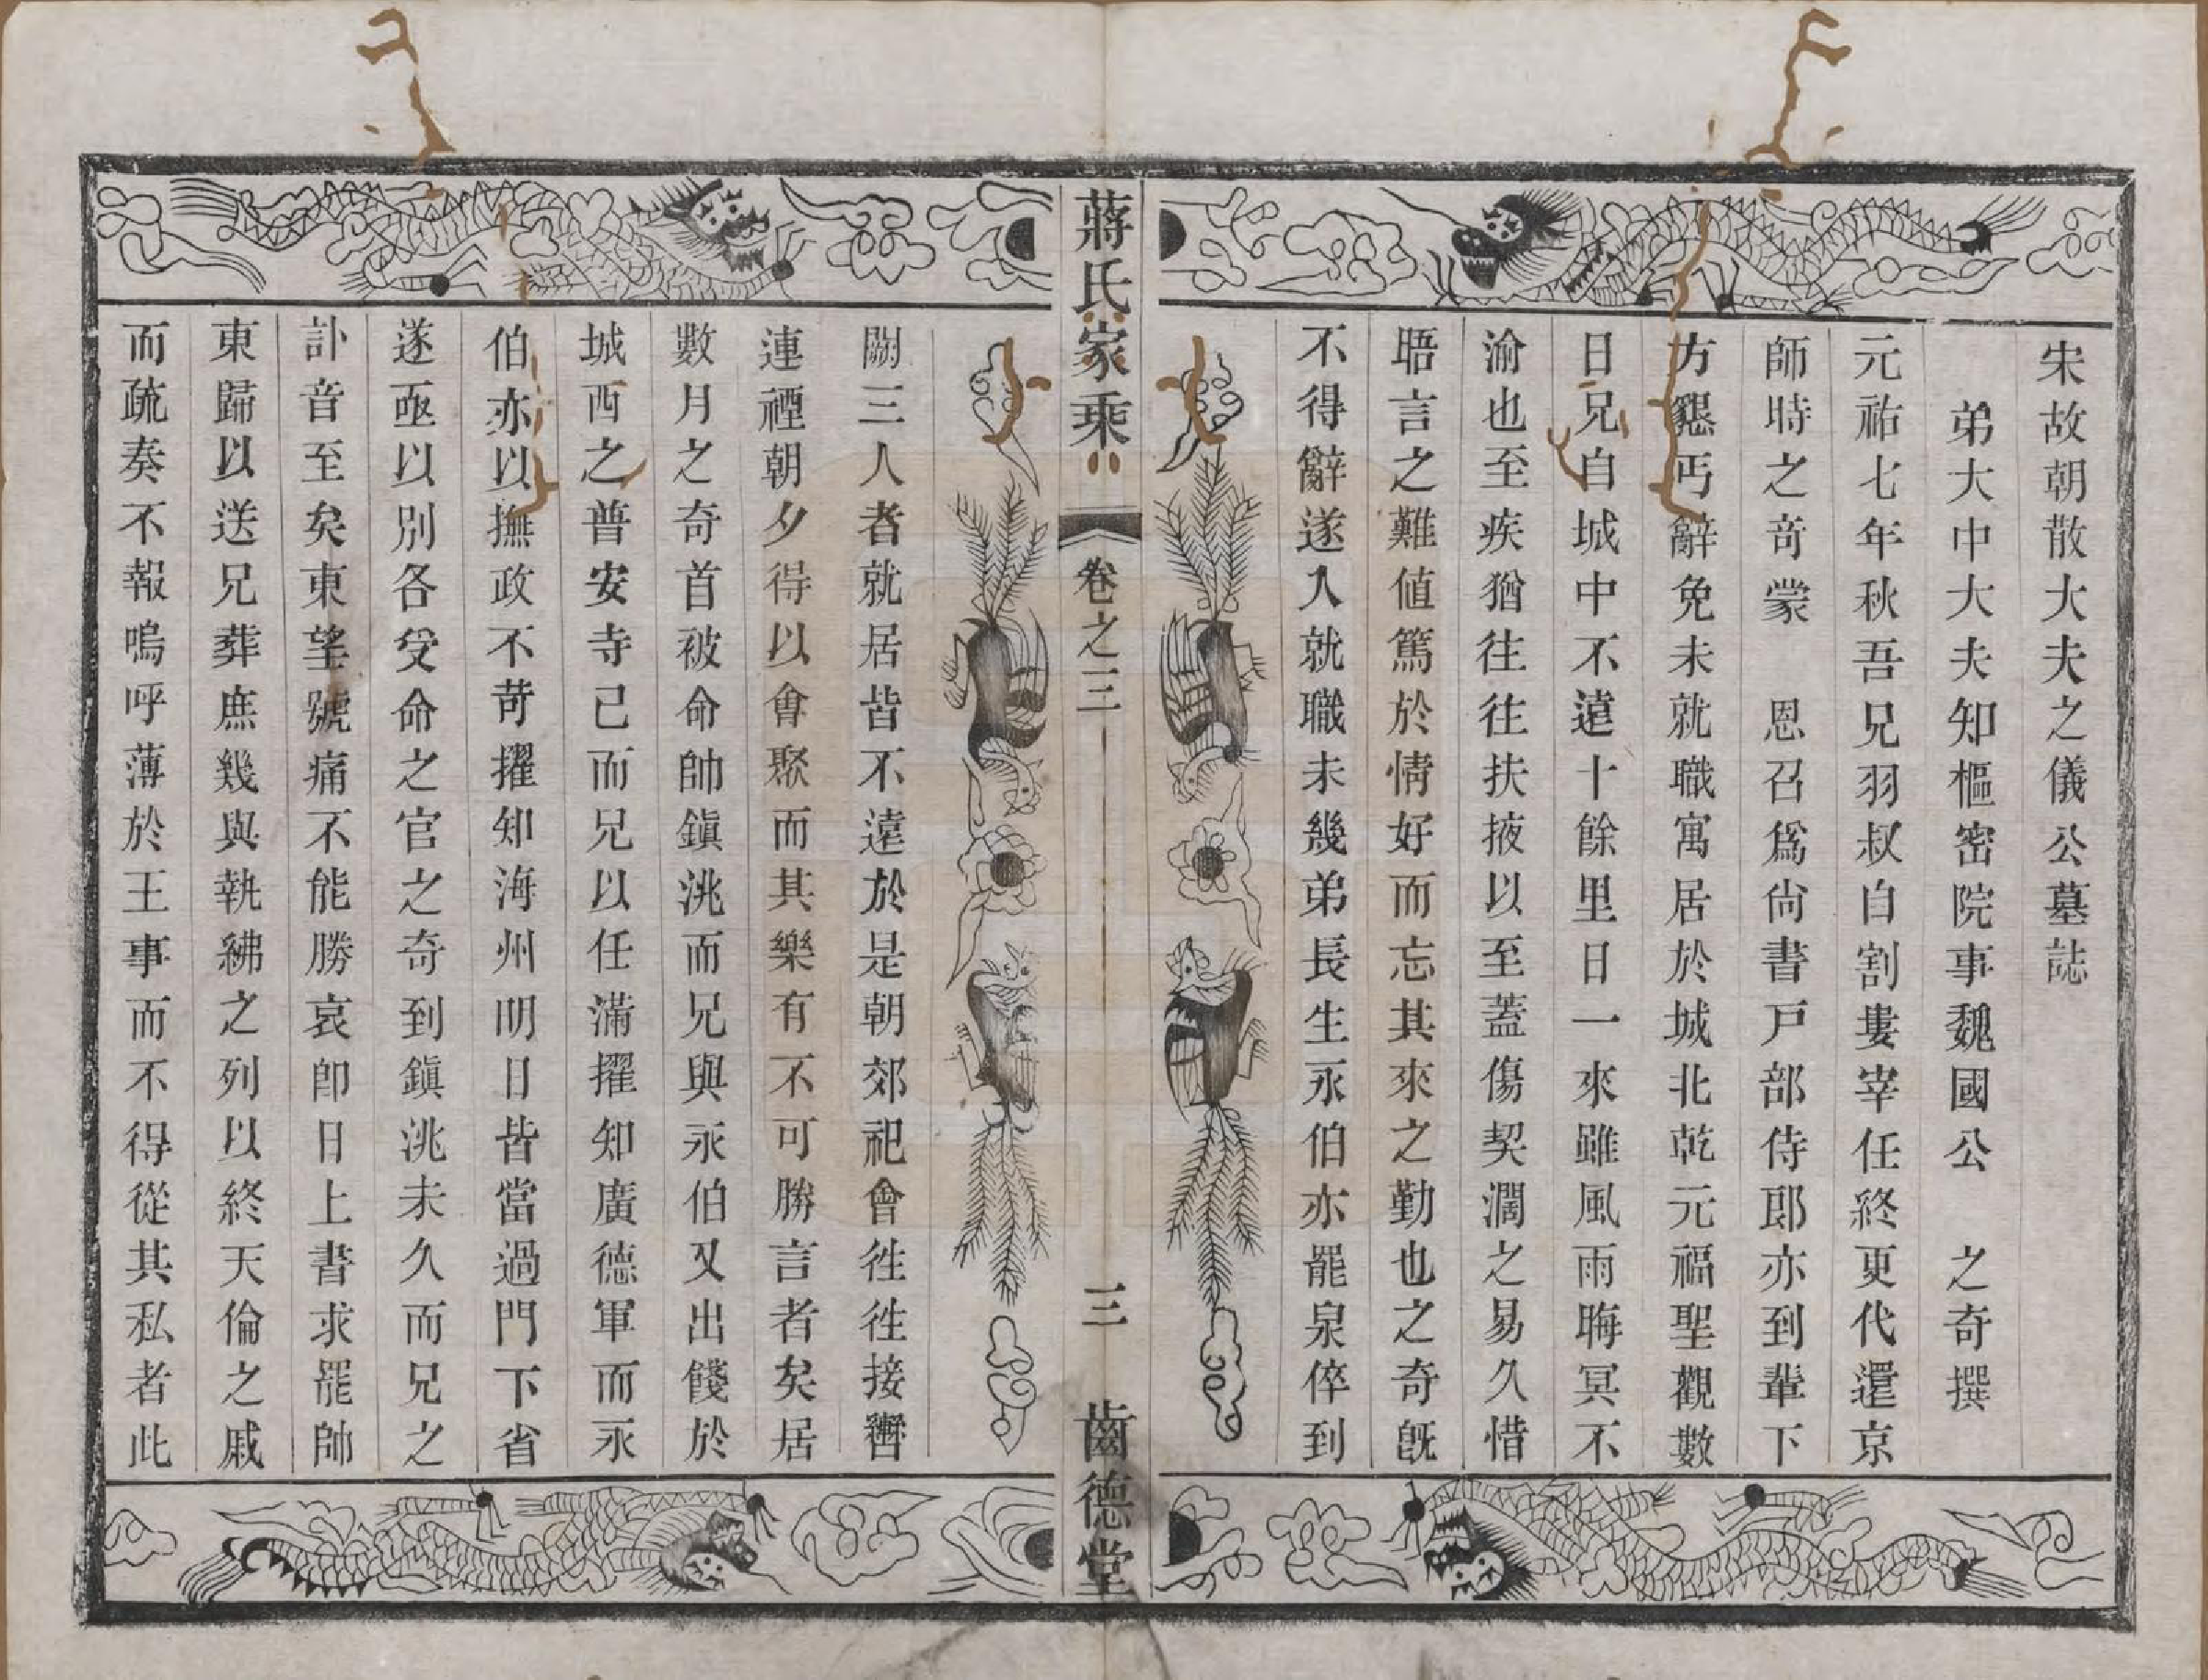 宋故朝散大夫之儀公墓誌
弟大中大夫知樞密院事魏國公　之奇撰
元祐七年秋吾兄羽叔自割婁宰任終更代還京
師時之竒蒙　恩召爲尙書戸部侍郎亦到輦下
方懇丐辭免未就職寓居於城北乾元福聖觀數
日兄自城中不遠十餘里日一來雖風雨晦冥不
渝也至疾猶往往扶掖以至蓋傷契濶之易久惜
晤言之難値篤於情好而忘其來之勤也之奇旣
不得辭遂入就職未幾弟長生永伯亦罷泉倅到
闕三人者就居皆不遠於是朝郊祀會徃徃接轡
連禋朝夕得以會聚而其樂有不可勝言者矣居
數月之奇首被命帥鎭洮而兄與永伯又出餞於
城西之普安寺已而兄以任滿擢知廣德軍而永
伯亦以撫政不苛擢知海州明日皆當過門下省
遂亟以別各受命之官之奇到鎭洮未久而兄之
訃音至矣東望號痛不能勝哀卽日上書求罷帥
東歸以送兄葬庶幾與執紼之列以終天倫之戚
而疏奏不報嗚呼薄於王事而不得從其私者此
蔣氏家乘
卷之三
三
齒德堂